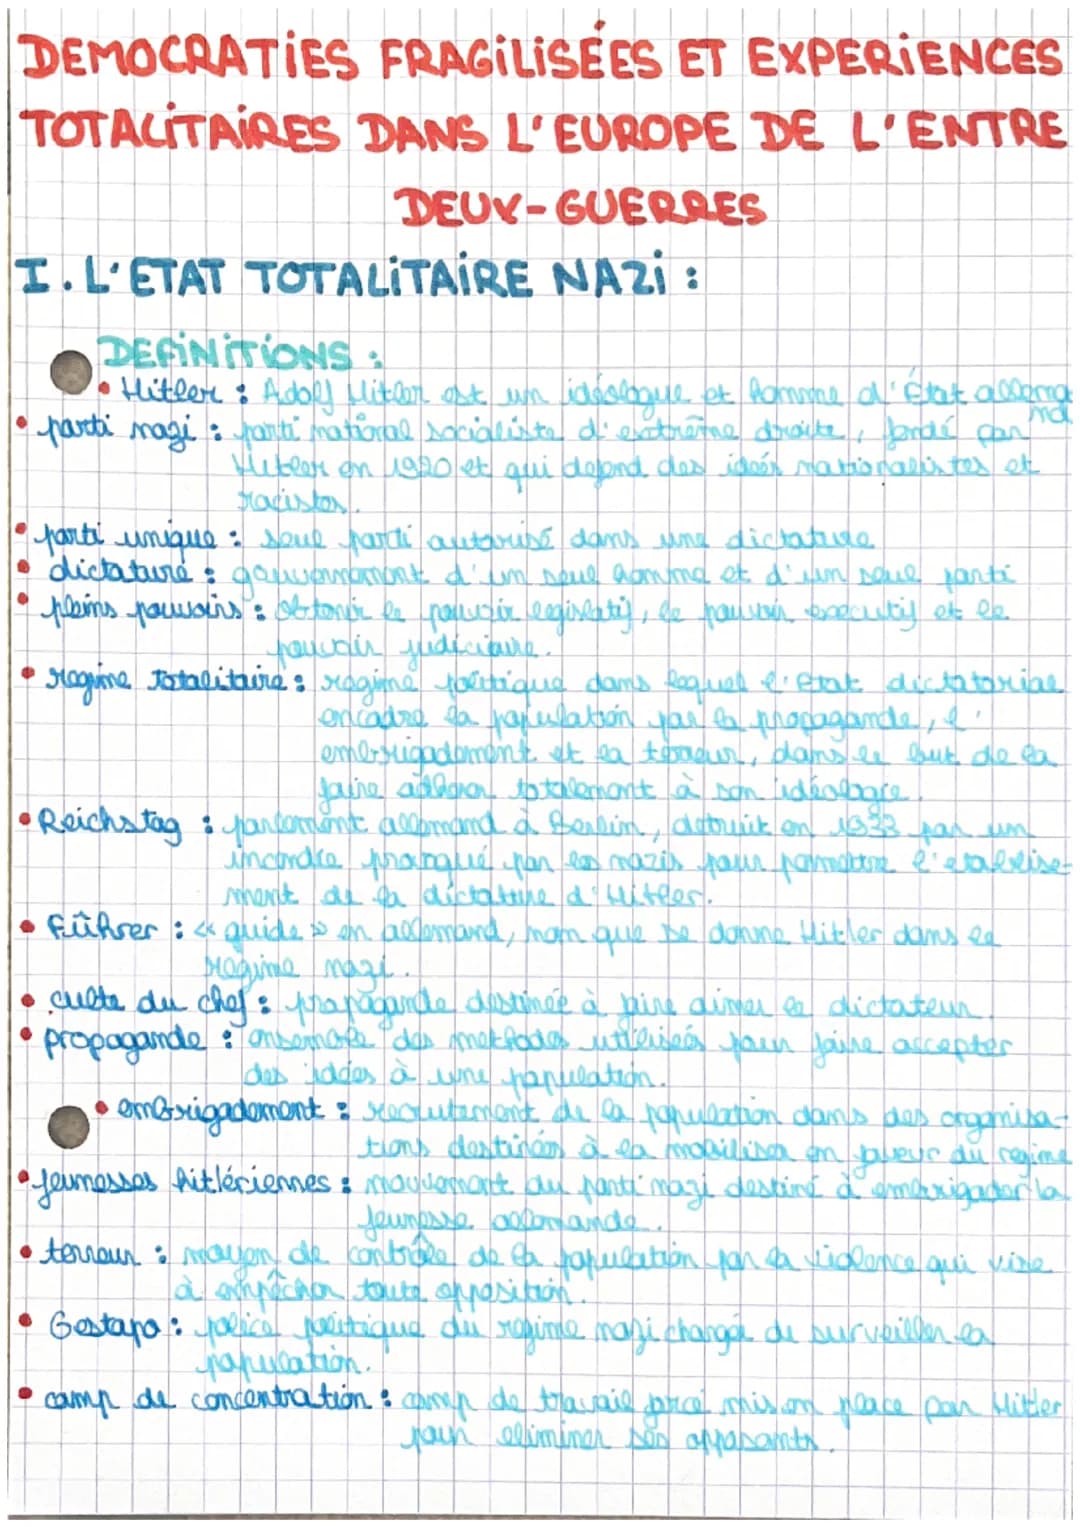 DEMOCRATiES FRAGiLiSÉES ET EXPERiENCES
TOTALiTAiRES DANS L'EUROPE DE L'ENTRE
DEUX-GUERRES
I. L'ETAT TOTALiTAiRE NAZi :
DEFiNiTiONS :
• Hitler : Adolf Hitler est un idéologue et homme d'État allema
nd
• parti nazi : parti national socialiste d'extrême droite, fondé par
Hitler en 1920 et qui defend des ideés nationalistes et
racistes.
• parti unique : seul parti autorisé dans une dictature
• dictature : gouvernement d'un seul homme et d'un seul parti
• pleins pouvoirs : obtenir le pouvoir legislatif, le pouvoir executif et le
pouvoir judiciaire.
• regime totalitaire : régime politique dans lequel l'Etat dictatorial
encadre la population par la propagande, l'
embrigadement et la terreur, dans le but de la
faire adherer totalement à son idéologie.
• Reichstag : parlement allemand à Berlin, detruit en 1933 par un
incendie provoqué par les nazis pour permettre l'etablisse-
ment de la dictature d'Hitler.
• Führer : « guide » en allemand, nom que se donne Hitler dans le
régime nazi.
• culte du chef : propagande destinée à faire aimer le dictateur.
• propagande : ensemble des methodes utiliseés pour faire accepter
des idées à une population.
• embrigadement : recrutement de la population dans des organisa-
tions destinées à la mobiliser en faveur du regime
• jeunesses hitlériennes : mouvement du parti nazi destiné à embrigader la
jeunesse allemande.
• terreur : moyen de contrôle de la population par la violence qui vise
à empêcher toute opposition.
• Gestapo : police politique du régime nazi chargé de surveiller la
population.
• camp de concentration : camp de travail forcé mis en place par Hitler
pour eliminer ses opposants.